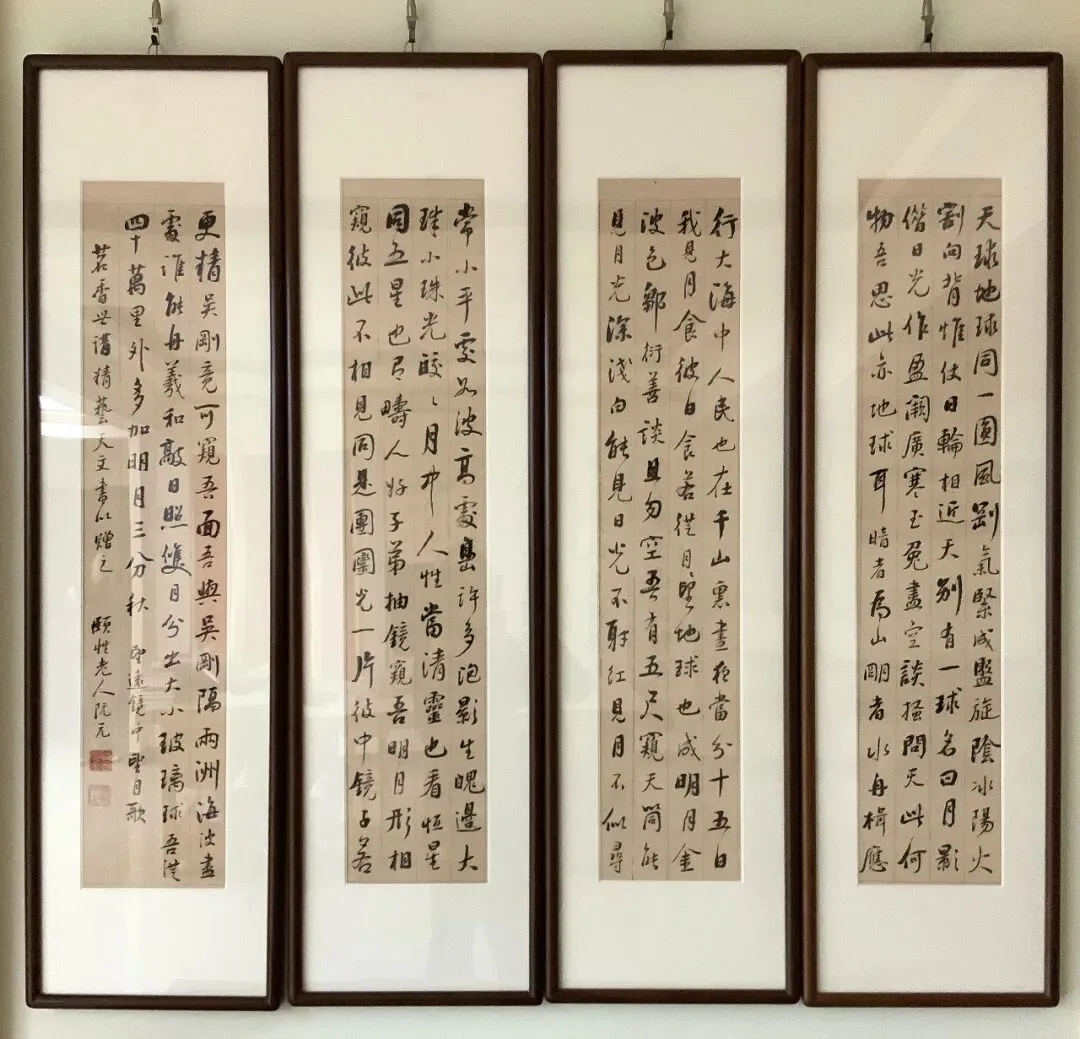 天球地球同一圓風剛氣緊成盤旋陰冰陽火
割向背惟仗日輪相近天別有一球名曰月影
借日光作盈闕廣寒玉兔盡空談搔問天此何
物吾思此亦地球耳暗者爲山明者水舟楫應
行大海中人民也在千山裏晝夜當分十五日
我見月食彼日食若從月望地球也成明月金
波色鄒衍善談且勿空吾有五尺窺天筒能
見月光深淺白能見日光不射紅見月不似尋
常小平處如波高處島許多泡影生魄邊大
珠小珠光皎〻月中人性當清靈也看恒星
同五星也有疇人好子弟抽鏡窺吾明月形相
窺彼此不相見同是團圞光一片彼中鏡子若
更精吳剛竟可窺吾面吾與吳剛隔兩洲海波盡
處誰能舟羲和敲日照雙月分出大小玻璃球吾從
四十萬里外多加明月三分秋 望遠鏡中望月歌
茗香世講精藝天文書以贈之 頤性老人阮元